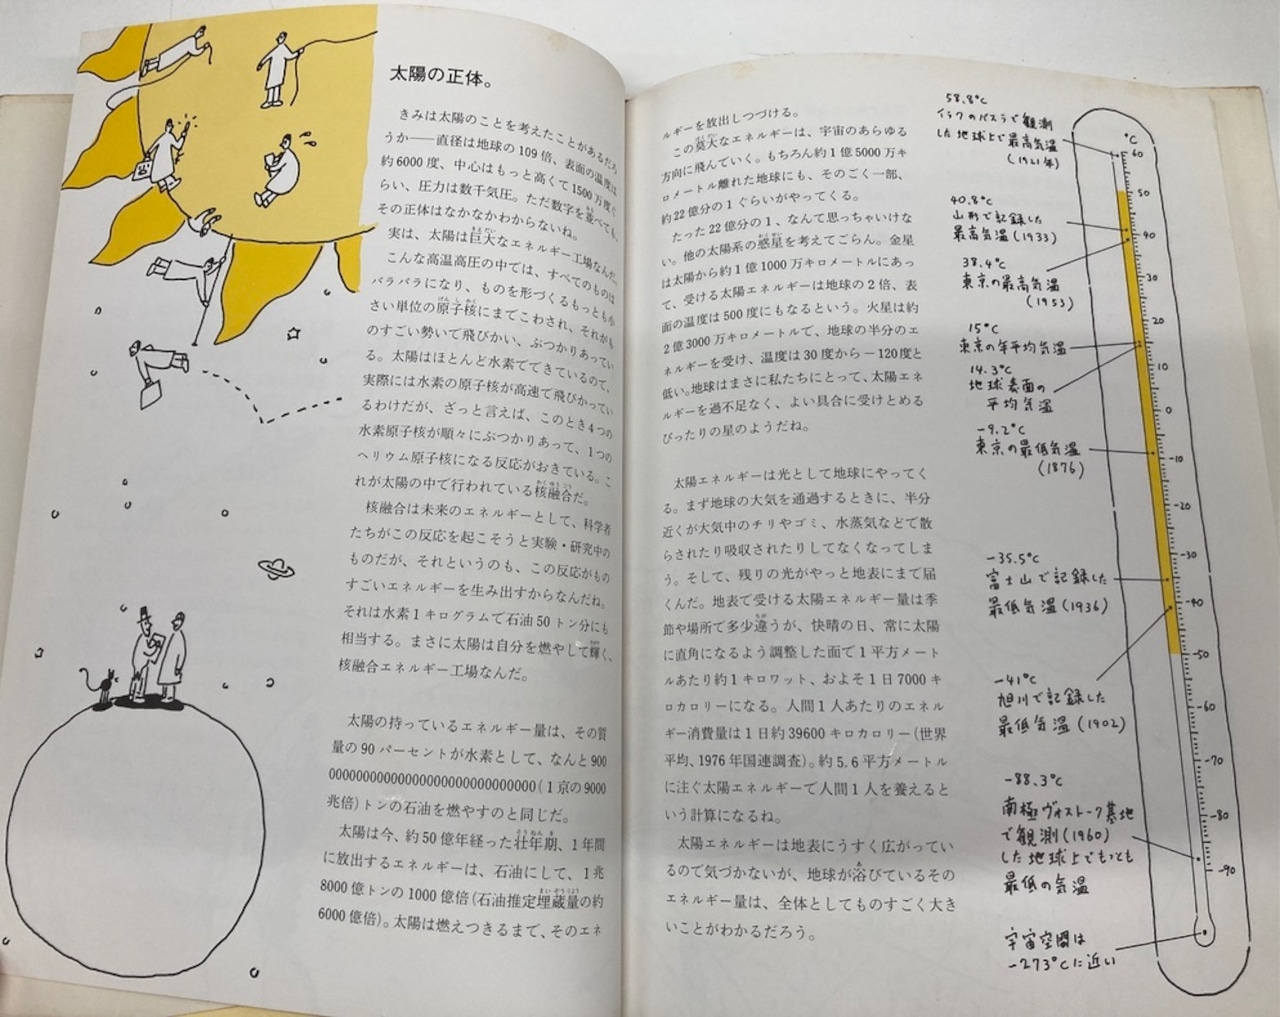 太陽の正体。
きみは太陽のことを考えたことがあるだろ
うか――直径は地球の109倍、表面の温度は
約6000度、中心はもっと高くて1500万度く
らい、圧力は数千気圧。ただ数字を並べても、
その正体はなかなかわからないね。
実は、太陽は巨大なエネルギー工場なんだ。
こんな高温高圧の中では、すべてのものは
バラバラになり、ものを形づくるもっとも小
さい単位の原子核にまでこわされ、それがも
のすごい勢いで飛びかい、ぶつかりあってい
る。太陽はほとんど水素でできているので、
実際には水素の原子核が高速で飛びかってい
るわけだが、ざっと言えば、このとき4つの
水素原子核が順々にぶつかりあって、1つの
ヘリウム原子核になる反応がおきている。こ
れが太陽の中で行われている核融合だ。
核融合は未来のエネルギーとして、科学者
たちがこの反応を起こそうと実験・研究中の
ものだが、それというのも、この反応がもの
すごいエネルギーを生み出すからなんだね。
それは水素1キログラムで石油50トン分にも
相当する。まさに太陽は自分を燃やして輝く、
核融合エネルギー工場なんだ。
太陽の持っているエネルギー量は、その質
量の90パーセントが水素として、なんと900
(1京の9000
兆倍)トンの石油を燃やすのと同じだ。
太陽は今、約50億年経った壮年期、1年間
に放出するエネルギーは、石油にして、1兆
8000億トンの1000億倍(石油推定埋蔵量の約
6000億倍)。太陽は燃えつきるまで、そのエネ
ルギーを放出しつづける。
この莫大なエネルギーは、宇宙のあらゆる
方向に飛んでいく。もちろん約1億5000万キ
ロメートル離れた地球にも、そのごく一部、
約22億分の1ぐらいがやってくる。
たった22億分の1、なんて思っちゃいけな
い。他の太陽系の惑星を考えてごらん。金星
は太陽から約1億1000万キロメートルにあっ
て、受ける太陽エネルギーは地球の2倍、表
面の温度は500度にもなるという。火星は約
2億3000万キロメートルで、地球の半分のエ
ネルギーを受け、温度は30度から－120度と
低い。地球はまさに私たちにとって、太陽エネ
ルギーを過不足なく、よい具合に受けとめる
ぴったりの星のようだね。
太陽エネルギーは光として地球にやってく
る。まず地球の大気を通過するときに、半分
近くが大気中のチリやゴミ、水蒸気などで散
らされたり吸収されたりしてなくなってしま
う。そして、残りの光がやっと地表にまで届
くんだ。地表で受ける太陽エネルギー量は季
節や場所で多少違うが、快晴の日、常に太陽
に直角になるよう調整した面で1平方メート
ルあたり約1キロワット、およそ1日7000キ
ロカロリーになる。人間1人あたりのエネル
ギー消費量は1日約39600キロカロリー(世界
平均、1976年国連調査)。約5.6平方メートル
に注ぐ太陽エネルギーで人間1人を養えると
いう計算になるね。
太陽エネルギーは地表にうすく広がってい
るので気づかないが、地球が浴びているその
エネルギー量は、全体としてものすごく大き
いことがわかるだろう。
58.8℃
イラクのバスラで観測
した地球上で最高気温
(1921年)
40.8℃
山形で記録した
最高気温(1933)
38.4℃
東京の最高気温
(1953)
15℃
東京の年平均気温
14.3℃
地球表面の
平均気温
-9.2℃
東京の最低気温
(1876)
-35.5℃
富士山で記録した
最低気温(1936)
-41℃
旭川で記録した
最低気温(1902)
-88.3℃
南極ヴォストーク基地
で観測(1960)
した地球上でもっとも
最低の気温
宇宙空間は
-273℃に近い
℃
60
50
40
30
20
10
0
-10
-20
-30
-40
-50
-60
-70
-80
-90